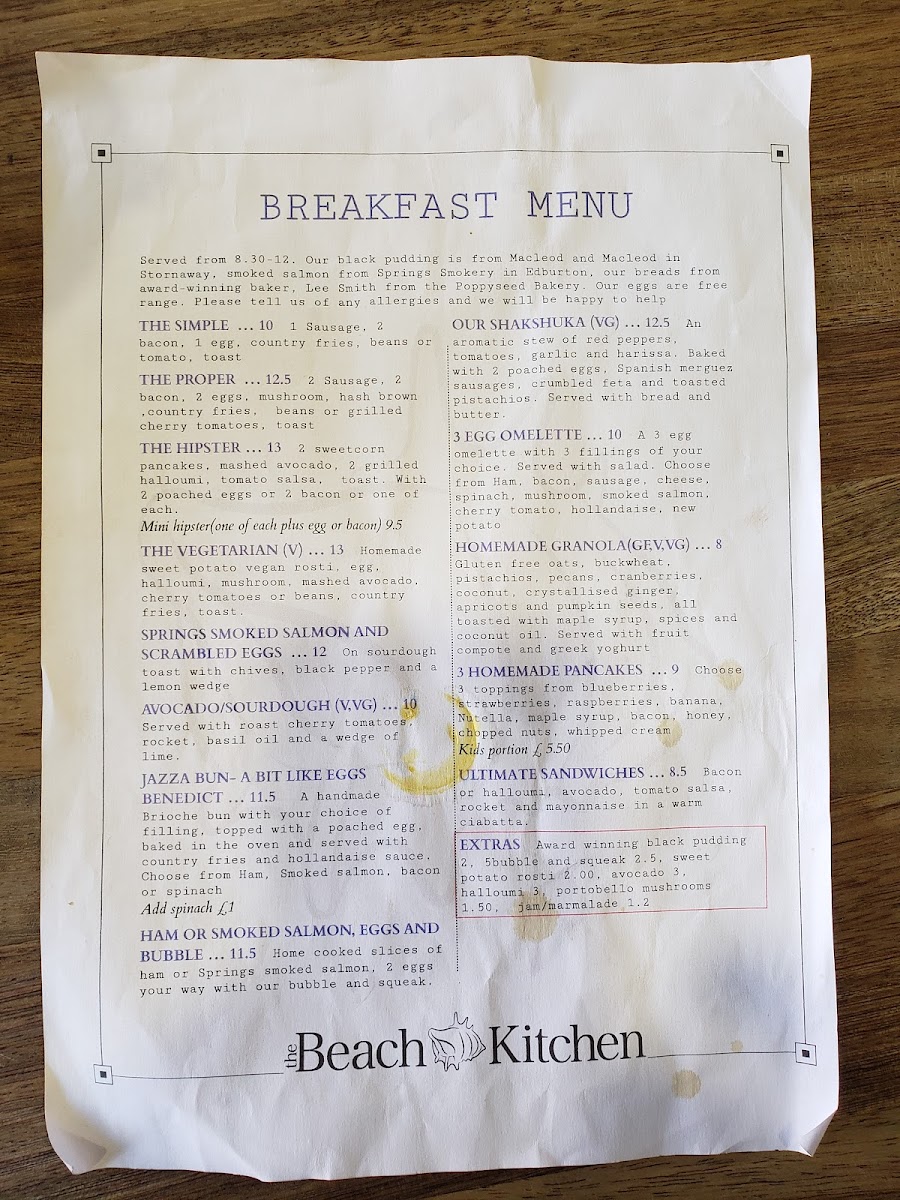 BREAKFAST MENU
Served from 8.30-12. Our black pudding is from Macleod and Macleod in
Stornaway, smoked salmon from Springs Smokery in Edburton, our breads from
award-winning baker, Lee Smith from the Poppyseed Bakery. Our eggs are free
range. Please tell us of any allergies and we will be happy to help
THE SIMPLE ... 10 1 Sausage, 2
bacon, 1 egg, country fries, beans or
tomato, toast
THE PROPER ... 12.5 2 Sausage, 2
bacon, 2 eggs, mushroom, hash brown
,country fries, beans or grilled
cherry tomatoes, toast
THE HIPSTER ... 13 2 sweetcorn
pancakes, mashed avocado, 2 grilled
halloumi, tomato salsa, toast. With
2 poached eggs or 2 bacon or one of
each.
Mini hipster(one of each plus egg or bacon) 9.5
THE VEGETARIAN (V) ... 13 Homemade
sweet potato vegan rosti, egg,
halloumi, mushroom, mashed avocado,
cherry tomatoes or beans, country
fries, toast.
SPRINGS SMOKED SALMON AND
SCRAMBLED EGGS ... 12 On sourdough
toast with chives, black pepper and a
lemon wedge
AVOCADO/SOURDOUGH (V,VG) ... 10
Served with roast cherry tomatoes,
rocket, basil oil and a wedge of
lime.
JAZZA BUN- A BIT LIKE EGGS
BENEDICT ... 11.5 A handmade
Brioche bun with your choice of
filling, topped with a poached egg,
baked in the oven and served with
country fries and hollandaise sauce.
Choose from Ham, Smoked salmon, bacon
or spinach
Add spinach £1
HAM OR SMOKED SALMON, EGGS AND
BUBBLE ... 11.5 Home cooked slices of
ham or Springs smoked salmon, 2 eggs
your way with our bubble and squeak.
OUR SHAKSHUKA (VG) ... 12.5 An
aromatic stew of red peppers,
tomatoes, garlic and harissa. Baked
with 2 poached eggs, Spanish merguez
sausages, crumbled feta and toasted
pistachios. Served with bread and
butter.
3 EGG OMELETTE ... 10 A 3 egg
omelette with 3 fillings of your
choice. Served with salad. Choose
from Ham, bacon, sausage, cheese,
spinach, mushroom, smoked salmon,
cherry tomato, hollandaise, new
potato
HOMEMADE GRANOLA(GF,V,VG) ... 8
Gluten free oats, buckwheat,
pistachios, pecans, cranberries,
coconut, crystallised ginger,
apricots and pumpkin seeds, all
toasted with maple syrup, spices and
coconut oil. Served with fruit
compote and greek yoghurt
3 HOMEMADE PANCAKES ... 9 Choose
3 toppings from blueberries,
strawberries, raspberries, banana,
Nutella, maple syrup, bacon, honey,
chopped nuts, whipped cream
Kids portion £ 5.50
ULTIMATE SANDWICHES ... 8.5 Bacon
or halloumi, avocado, tomato salsa,
rocket and mayonnaise in a warm
ciabatta.
EXTRAS Award winning black pudding
2, 5bubble and squeak 2.5, sweet
potato rosti 2.00, avocado 3,
halloumi 3, portobello mushrooms
1.50, jam/marmalade 1.2
the Beach Kitchen